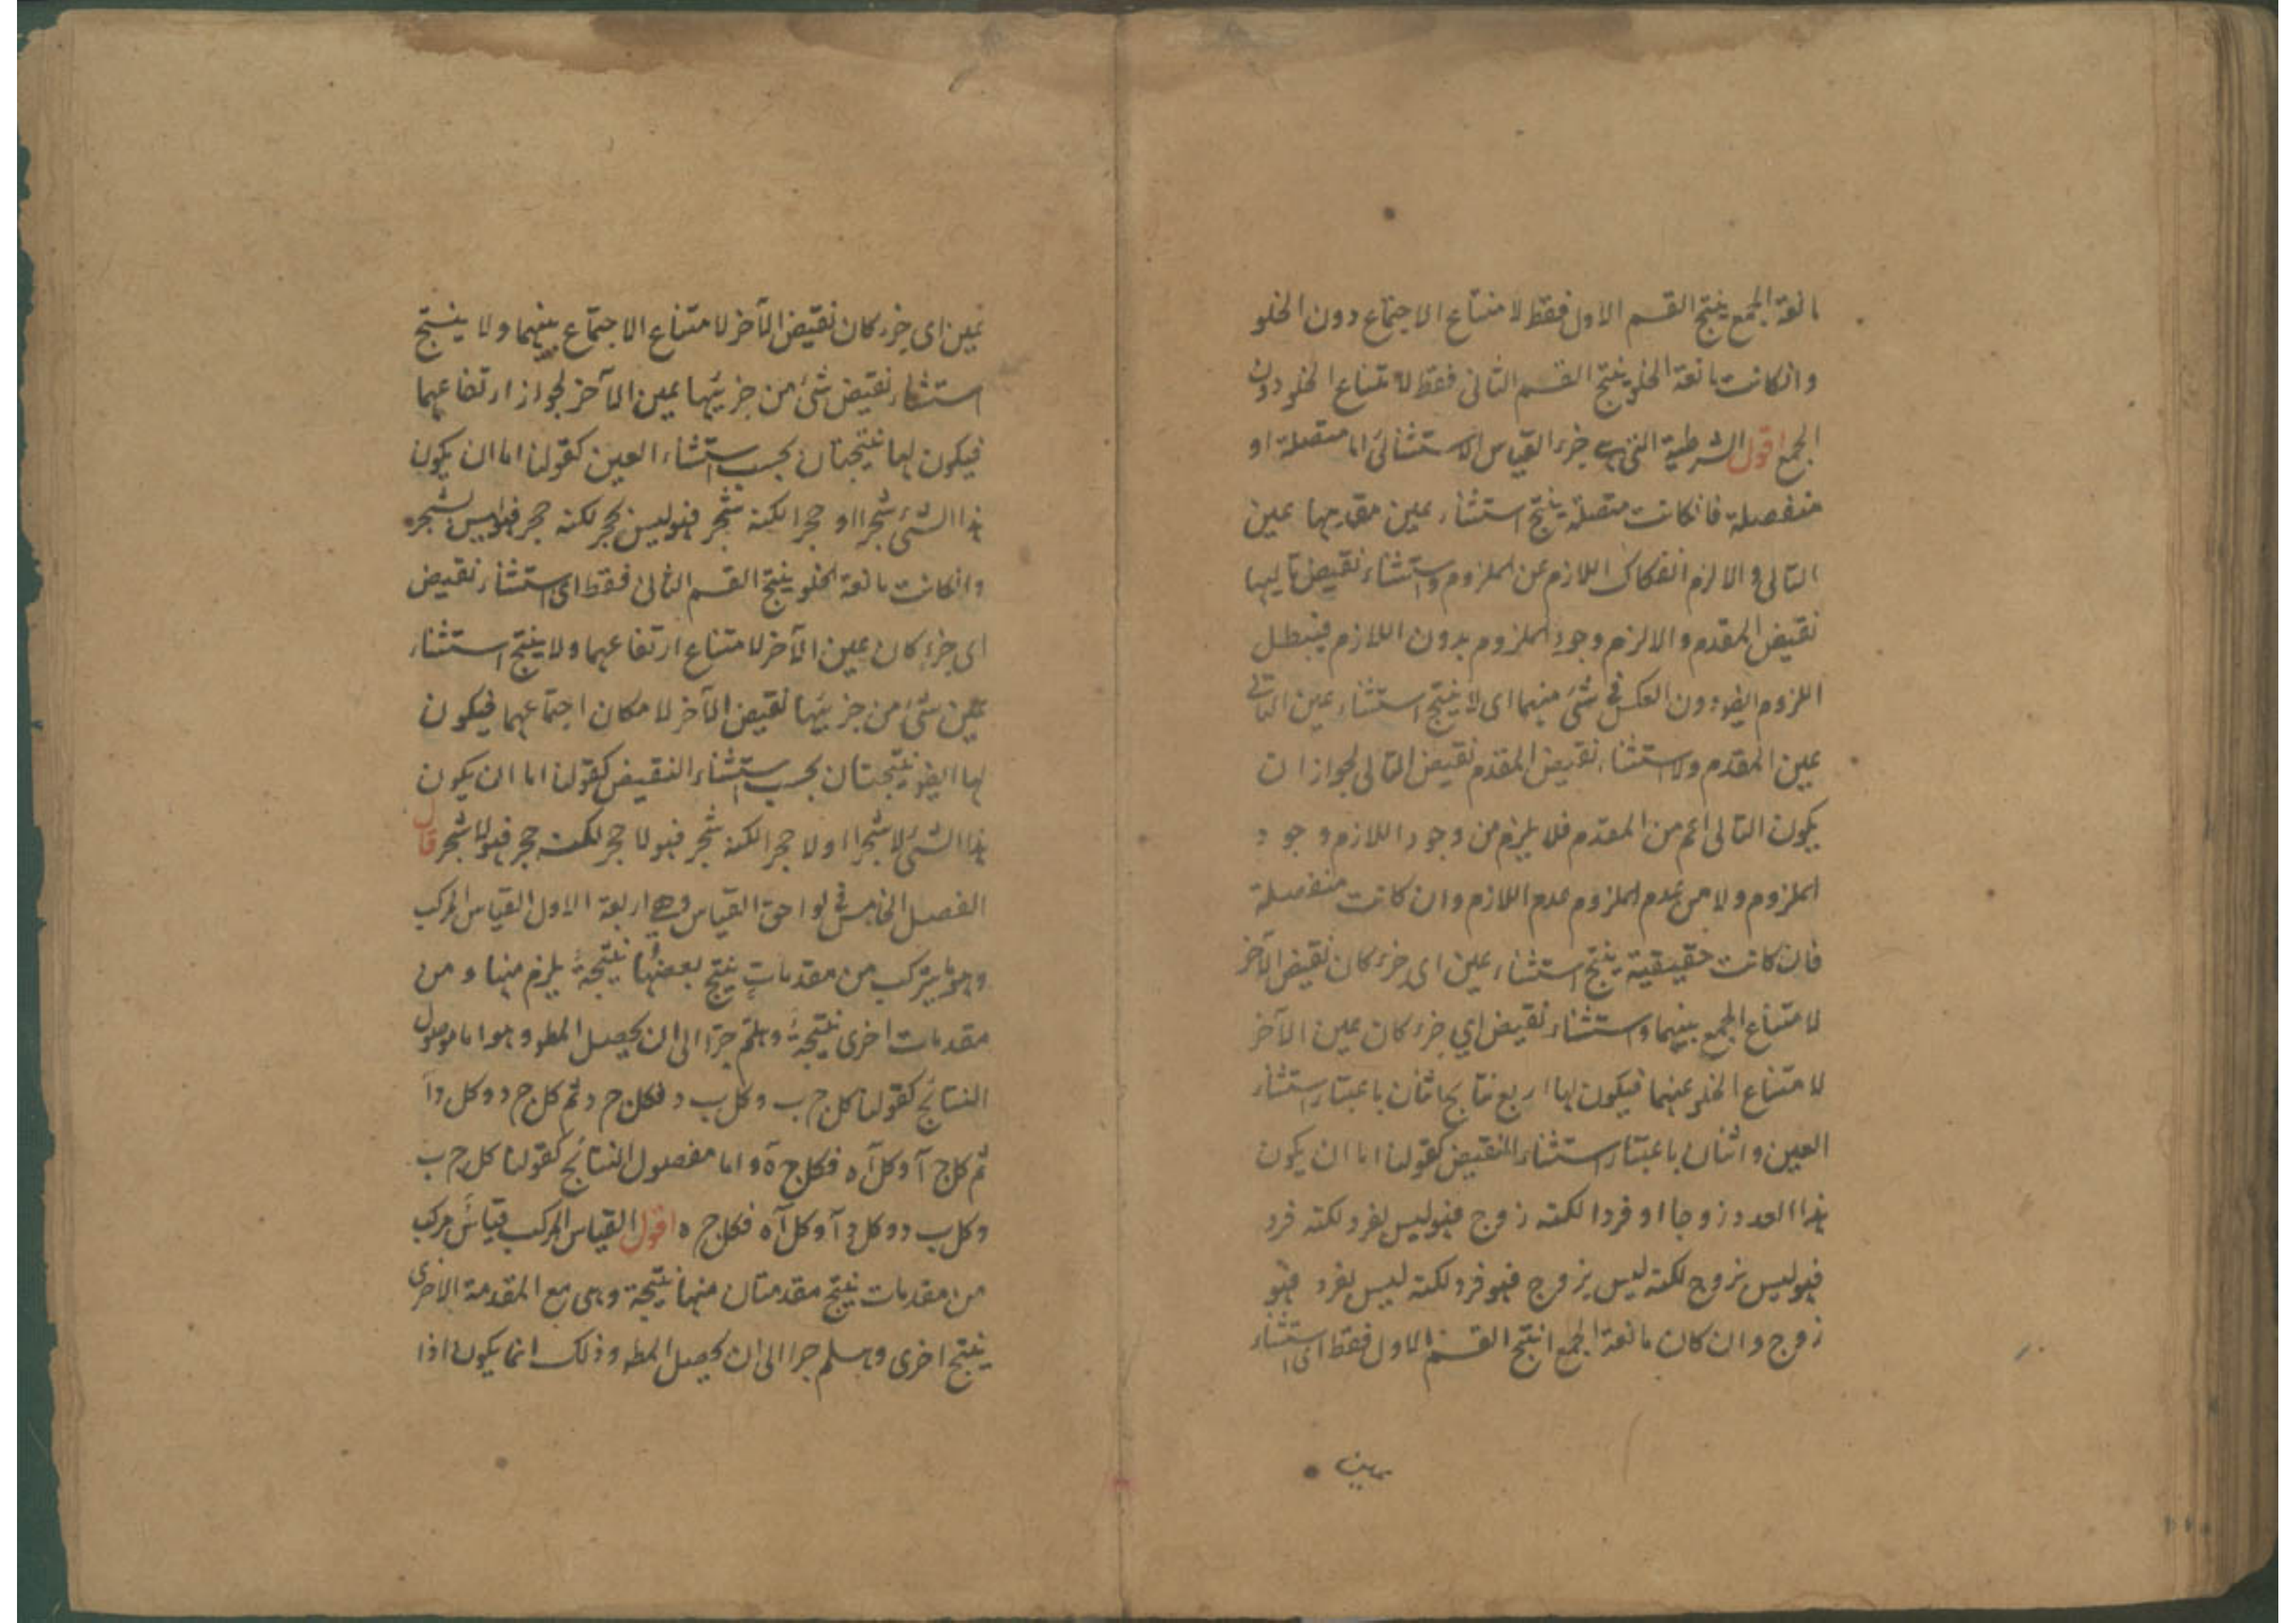 مانعة الجمع ينتج القسم الاول فقط لامتناع الاجتماع دون الخلو
وانكانت مانعة الخلو ينتج القسم الثانى فقط لامتناع الخلو دون
الجمع اقول الشرطية التى هى جزء القياس الاستثنائى اما متصلة او
منفصلة فانكانت متصلة ينتج استثناء عين مقدمها عين
التالى والا لزم انفكاك اللازم عن الملزوم واستثناء نقيض تاليها
نقيض المقدم والا لزم وجود الملزوم بدون اللازم فيبطل
اللزوم ايضا دون العكس فى شئ منهما اى لا ينتج استثناء عين التالى
عين المقدم ولا استثناء نقيض المقدم نقيض التالى لجواز ان
يكون التالى اعم من المقدم فلا يلزم من وجود اللازم وجود
الملزوم ولا من عدم الملزوم عدم اللازم وان كانت منفصلة
فان كانت حقيقية ينتج استثناء عين اى جزء كان نقيض الآخر
لامتناع الجمع بينهما واستثناء نقيض اي جزء كان عين الآخر
لامتناع الخلو عنهما فيكون لها اربع نتايج اثنان باعتبار استثناء
العين واثنان باعتبار استثناء النقيض كقولنا اما ان يكون
هذا العدد زوجا او فردا لكنه زوج فهو ليس بفرد لكنه فرد
فهو ليس بزوج لكنه ليس بزوج فهو فرد لكنه ليس بفرد فهو
زوج وان كان مانعة الجمع انتج القسم الاول فقط اى استثناء
عين اى جزء كان نقيض الآخر لامتناع الاجتماع بينهما ولا ينتج
استثناء نقيض شئ من جزئيها عين الآخر لجواز ارتفاعهما
فيكون لها نتيجتان بحسب استثناء العين كقولنا اما ان يكون
هذا الشئ شجرا او حجرا لكنه شجر فهو ليس بحجر لكنه حجر فهو ليس بشجر
وانكانت مانعة الخلو ينتج القسم الثانى فقط اى استثناء نقيض
اى جزء كان عين الآخر لامتناع ارتفاعهما ولا ينتج استثناء
عين شئ من جزئيها نقيض الآخر لامكان اجتماعهما فيكون
لها ايضا نتيجتان بحسب استثناء النقيض كقولنا اما ان يكون
هذا الشئ لا شجرا او لا حجرا لكنه شجر فهو لا حجر لكنه حجر فهو لا شجر قال
الفصل الخامس فى لواحق القياس وهى اربعة الاول القياس المركب
وهو ما يتركب من مقدمات ينتج بعضها نتيجة يلزم منها ومن
مقدمات اخرى نتيجة وهلم جرا الى ان يحصل المط وهو اما موصول
النتائج كقولنا كل ج ب وكل ب د فكل ج د ثم كل ج د وكل د آ
ثم كل ج آ وكل آ ه فكل ج ه واما مفصول النتائج كقولنا كل ج ب
وكل ب د وكل د آ وكل آ ه فكل ج ه اقول القياس المركب قياس مركب
من مقدمات ينتج مقدمتان منها نتيجة وهى مع المقدمة الاخرى
ينتج اخرى وهلم جرا الى ان يحصل المط وذلك انما يكون اذا